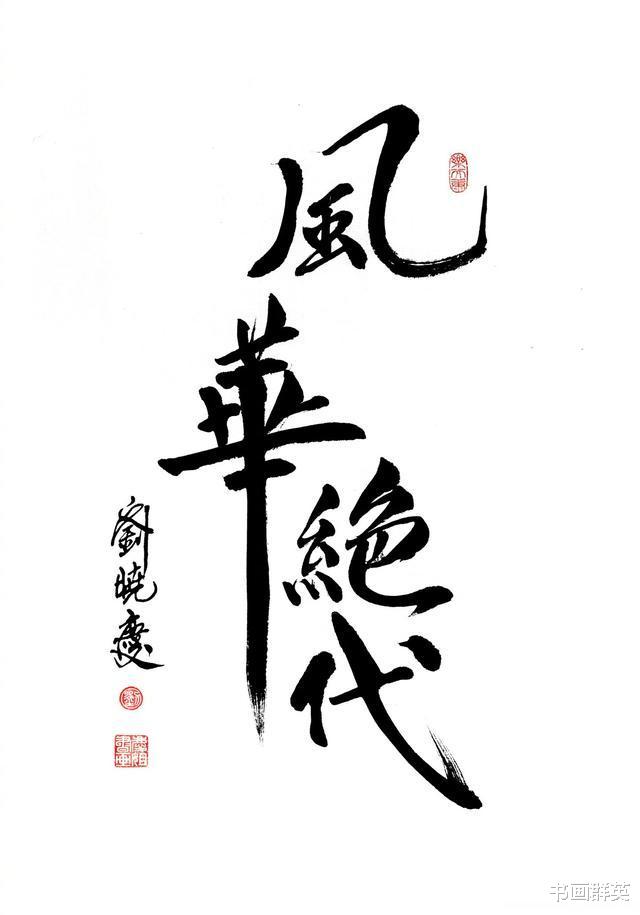 風華絕代
劉曉慶
书画群英